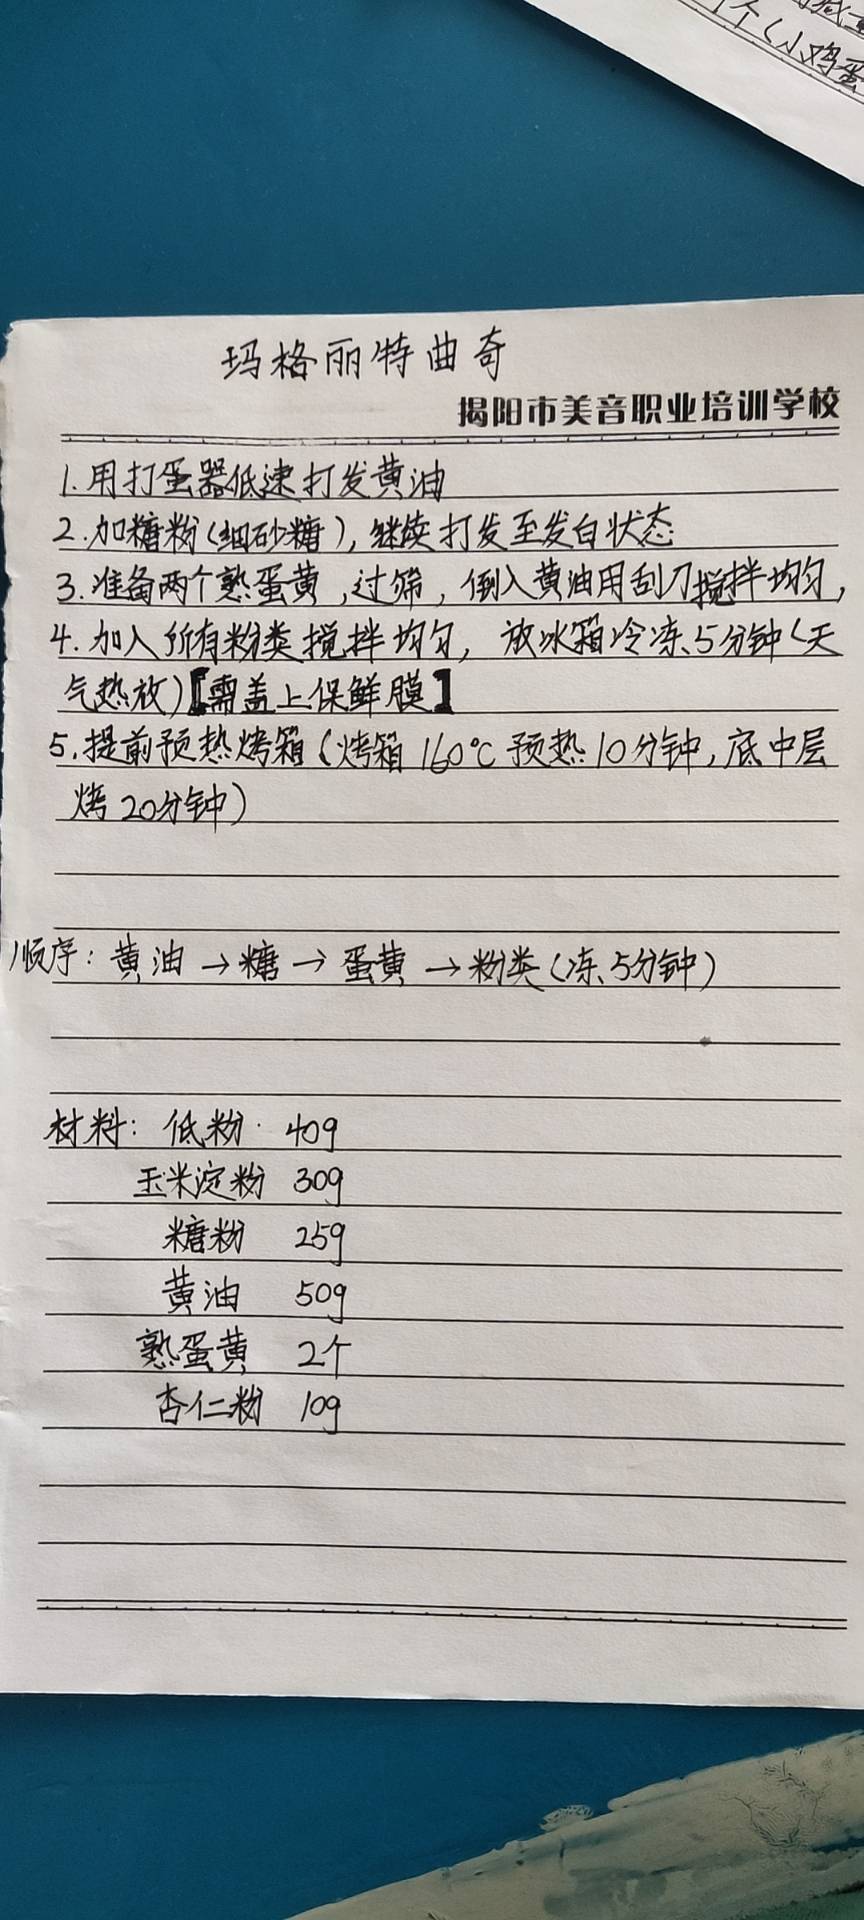 个(小鸡蛋
玛格丽特曲奇
揭阳市美音职业培训学校
1.用打蛋器低速打发黄油
2.加糖粉(细砂糖),继续打发至发白状态
3.准备两个熟蛋黄,过筛,倒入黄油用刮刀搅拌均匀,
4.加入所有粉类搅拌均匀,放冰箱冷冻5分钟(天
气热放)【需盖上保鲜膜】
5.提前预热烤箱(烤箱160℃预热10分钟,底中层
烤20分钟)
顺序:黄油→糖→蛋黄→粉类(冻5分钟)
材料:低粉 40g
玉米淀粉 30g
糖粉 25g
黄油 50g
熟蛋黄 2个
杏仁粉 10g